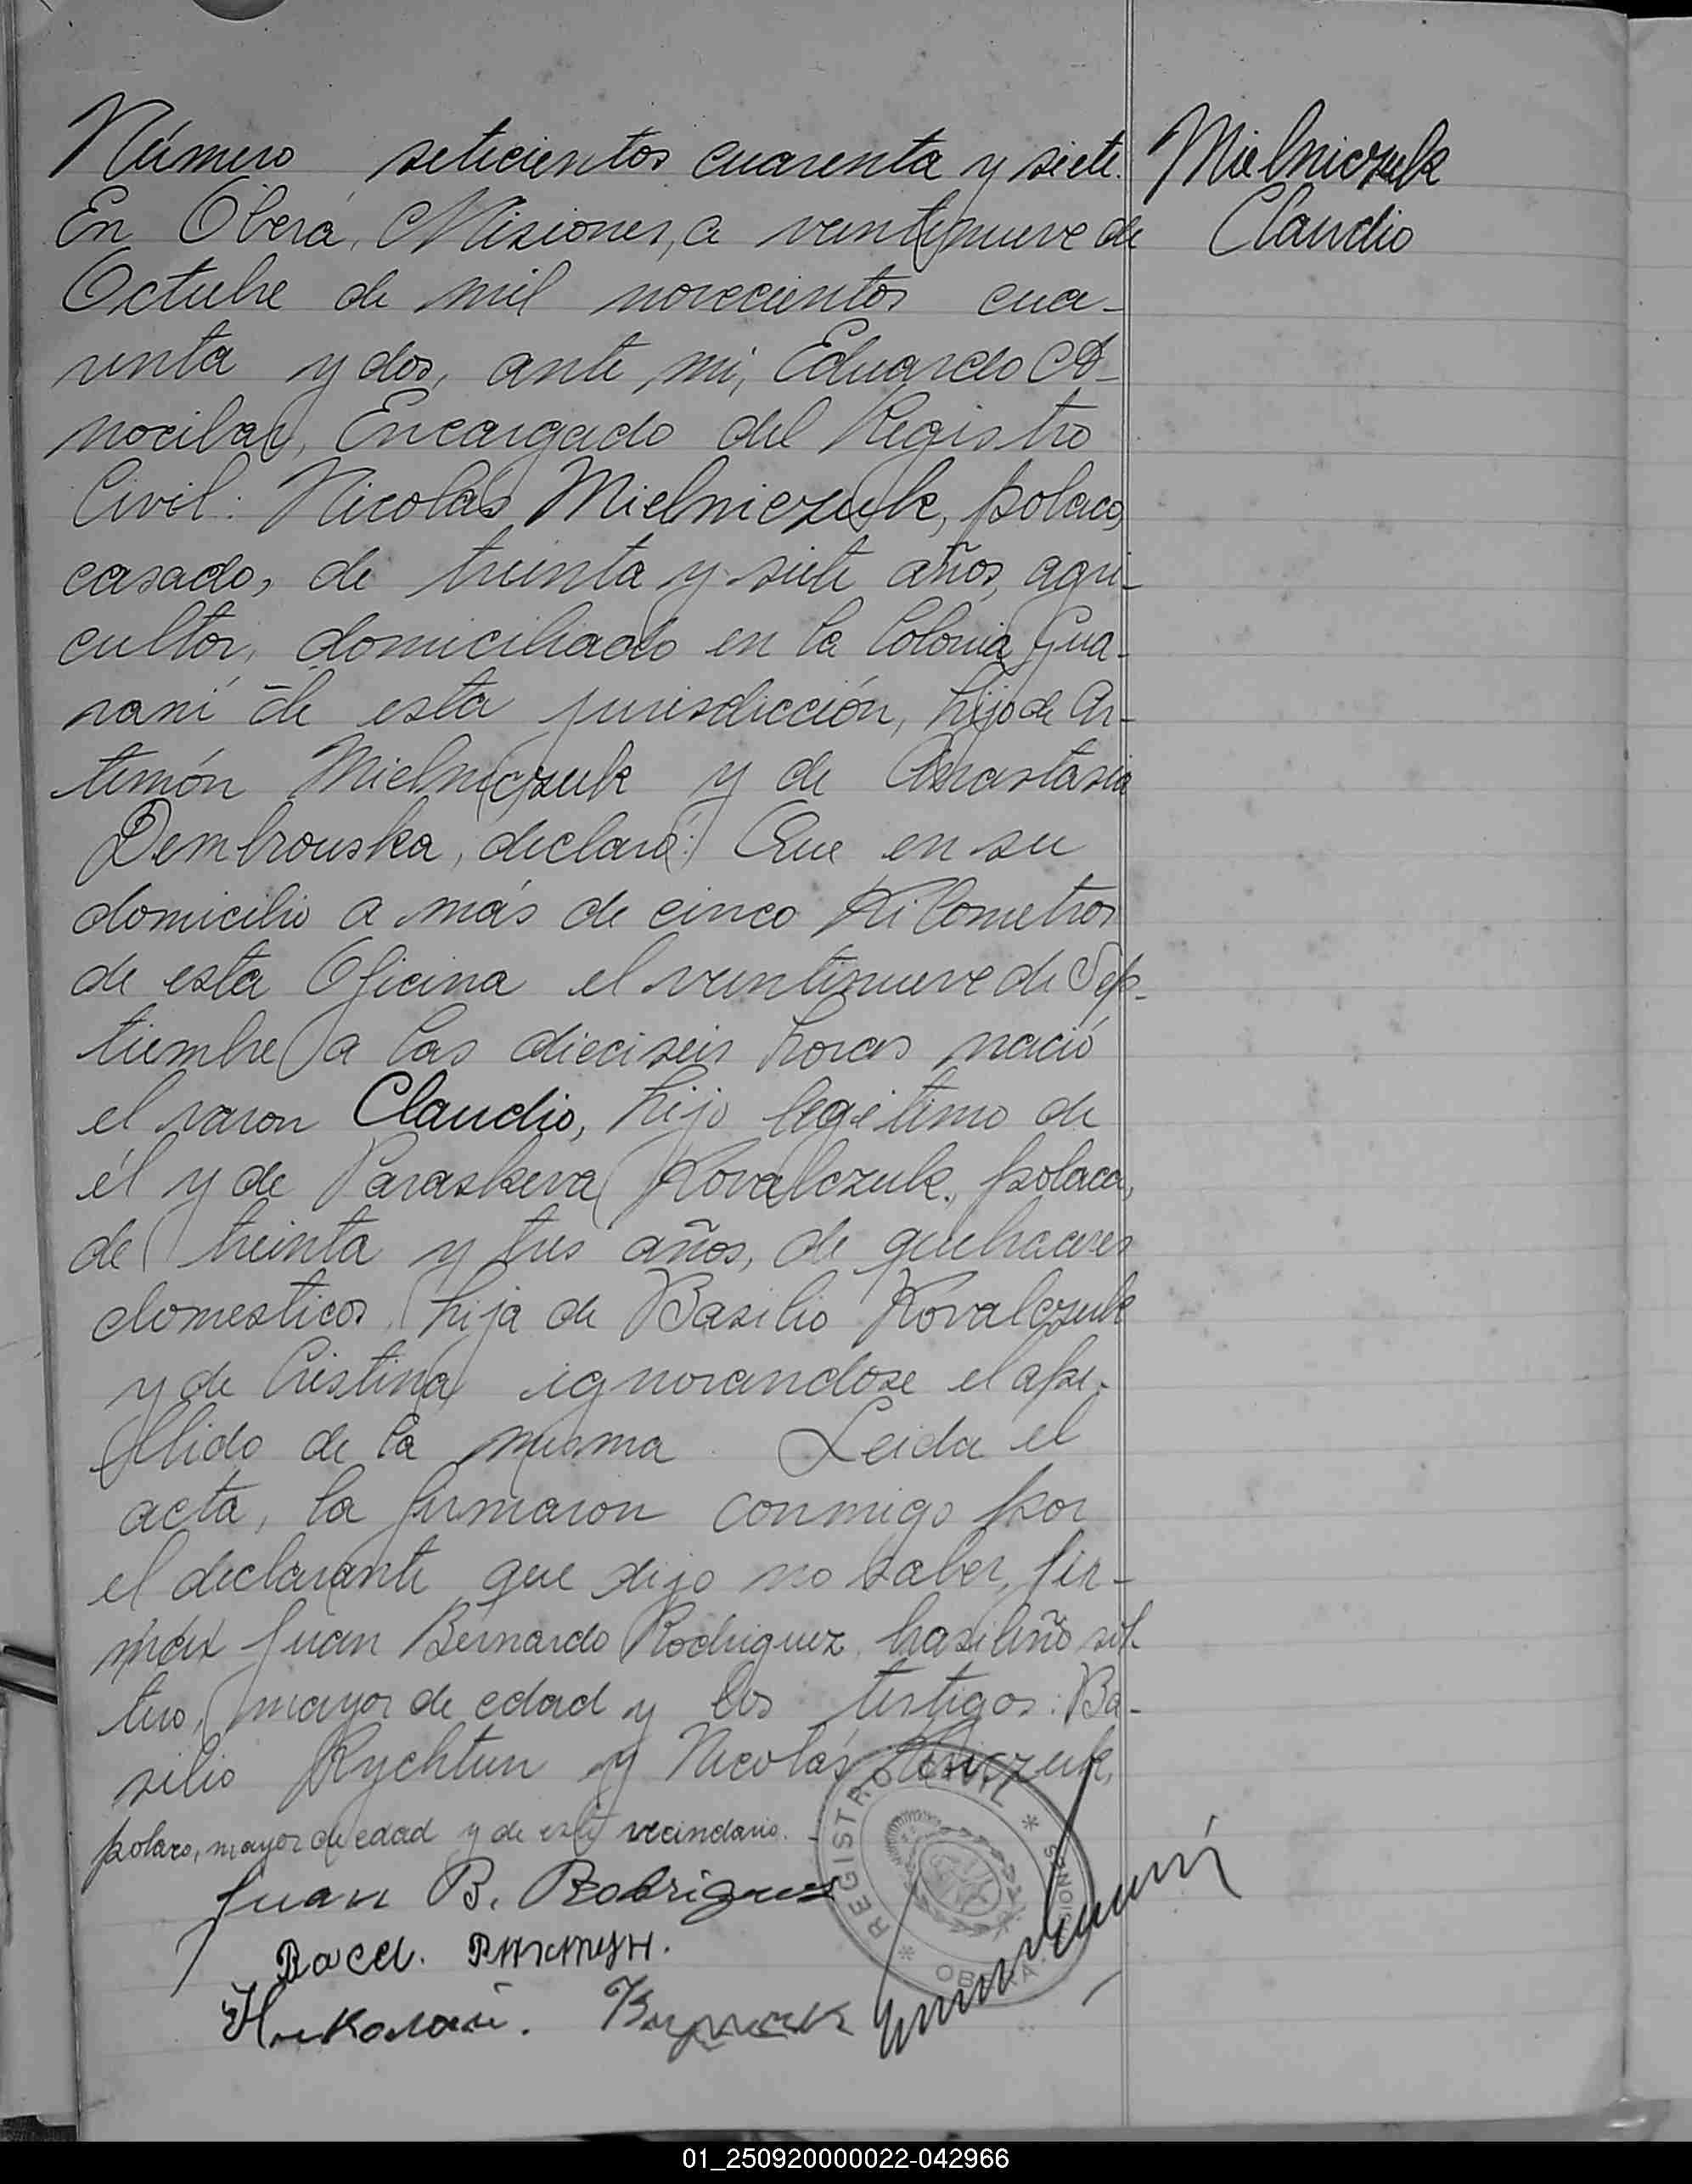 Número setecientos cuarenta y siete.
Mielniczuk
Claudio
En Oberá, Misiones, a veintinueve de
Octubre de mil novecientos cua-
renta y dos, ante mi, Eduardo A-
nocibar, Encargado del Registro
Civil: Nicolás Mielniczuk, polaco,
casado, de treinta y siete años, agri-
cultor, domiciliado en la Colonia Gua-
raní de esta jurisdicción, hijo de Ar-
temón Mielniczuk y de Anastasia
Dembrouska, declaró: Que en su
domicilio a más de cinco Kilometros
de esta Oficina el veintinueve de Sep-
tiembre a las dieciseis horas nació
el varon Claudio, hijo legitimo de
él y de Paraskeva Kovalczuk, polaca,
de treinta y tres años, de quehaceres
domesticos, hija de Basilio Kovalczuk
y de Cristina ignorandose el ape-
llido de la misma. Leida el
acta, la firmaron conmigo por
el declarante que dijo no saber fir-
mar Juan Bernardo Rodriguez, brasileño sol-
tero, mayor de edad y los testigos: Ba-
silio Rychtun y Nicolás
polaco, mayor de edad y de este vecindario.
Juan B. Rodrigues
Васил. Рихтун.
Николай.
REGISTRO CIVIL * MISIONES * OBERA *
01_250920000022-042966